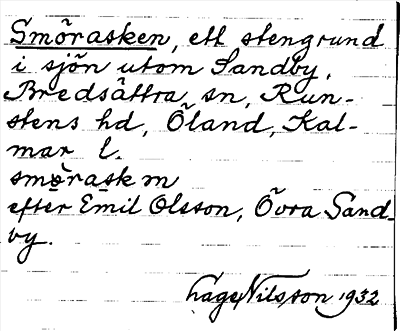 Smörasken, ett stengrund
i sjön utom Sandby,
Bredsättra sn, Run-
stens hd, Öland, Kal-
mar l.
smö̀rask m
efter Emil Olsson, Övra Sand-
by.
Hage Nilsson 1932